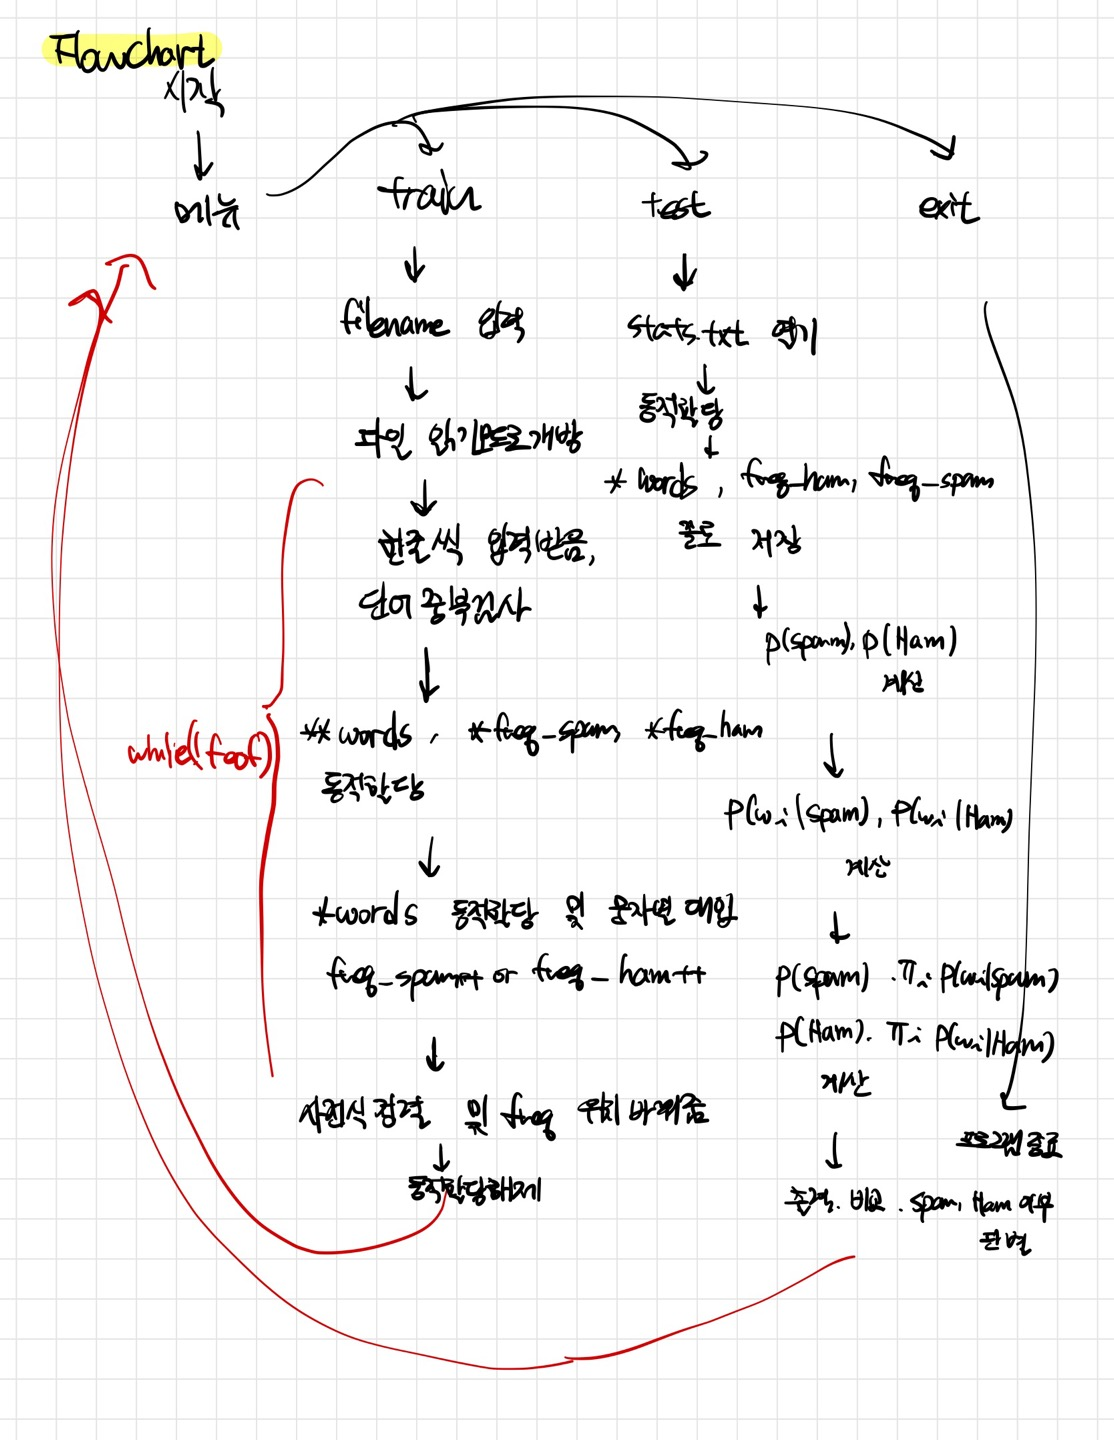 Flowchart
시작
메뉴
train
test
exit
filename 입력
파일 읽기모드로 개방
한줄씩 입력받음,
단어 중복검사
while(!feof)
** words, *freq_spam, *freq_ham
동적할당
*words 동적할당 및 문자열 대입
freq_spam++ or freq_ham++
사전식 정렬 및 freq 위치 바꿔줌
동적할당해제
stats.txt 열기
동적할당
* words, freq_ham, freq_spam
꼴로 저장
p(spam), p(Ham)
계산
P(wi|spam), P(wi|Ham)
계산
P(spam) · πi P(wi|spam)
P(Ham). πi P(wi|Ham)
계산
출력. 비교. spam, Ham 여부
판별
프로그램 종료